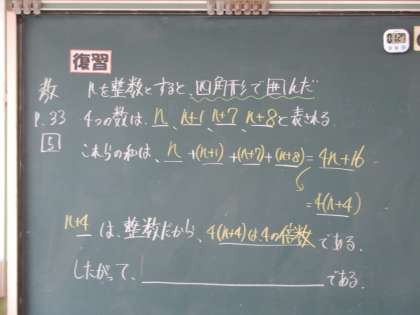 復習
教 nを整数とすると、四角形で囲んだ
P.33 4つの数は、n、n+1、n+7、n+8と表される。
5 これらの和は、n+(n+1)+(n+7)+(n+8)=4n+16
=4(n+4)
n+4は、整数だから、4(n+4)は4の倍数である。
したがって、である。